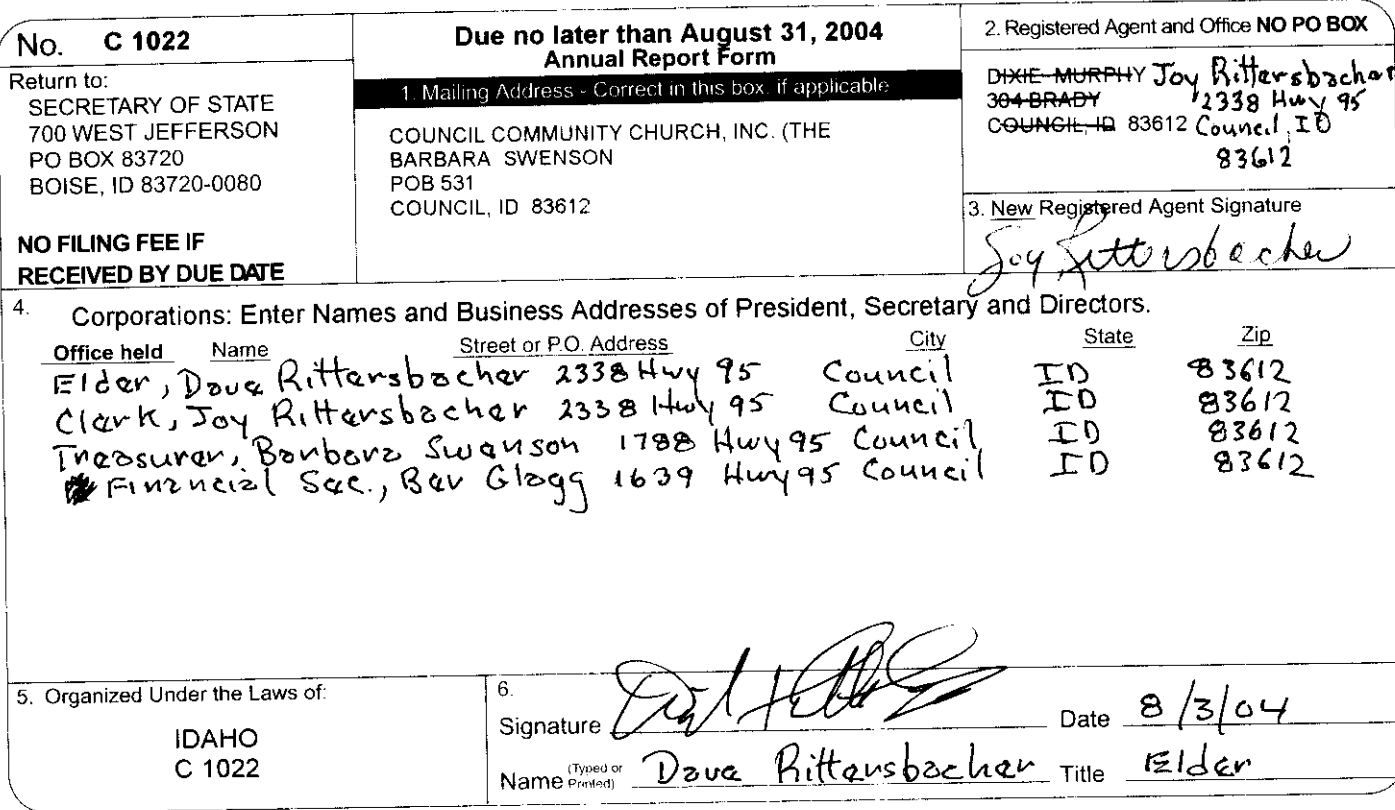 No. C 1022
Return to:
SECRETARY OF STATE
700 WEST JEFFERSON
PO BOX 83720
BOISE, ID 83720-0080
NO FILING FEE IF
RECEIVED BY DUE DATE
Due no later than August 31, 2004
Annual Report Form
1. Mailing Address - Correct in this box, if applicable
COUNCIL COMMUNITY CHURCH, INC. (THE
BARBARA SWENSON
POB 531
COUNCIL, ID 83612
2. Registered Agent and Office NO PO BOX
DIXIE MURPHY Joy Rittersbacher
304 BRADY 2338 Hwy 95
COUNCIL, ID 83612 Council, ID
83612
3. New Registered Agent Signature
Joy Rittersbacher
4. Corporations: Enter Names and Business Addresses of President, Secretary and Directors.
Office held Name Street or P.O. Address City State Zip
Elder, Dave Rittersbacher 2338 Hwy 95 Council ID 83612
Clerk, Joy Rittersbacher 2338 Hwy 95 Council ID 83612
Treasurer, Barbara Swenson 1788 Hwy 95 Council ID 83612
Financial Sec., Bev Glegg 1639 Hwy 95 Council ID 83612
5. Organized Under the Laws of:
IDAHO
C 1022
6.
Signature Date 8/3/04
Name (Typed or Printed) Dave Rittersbacher Title Elder